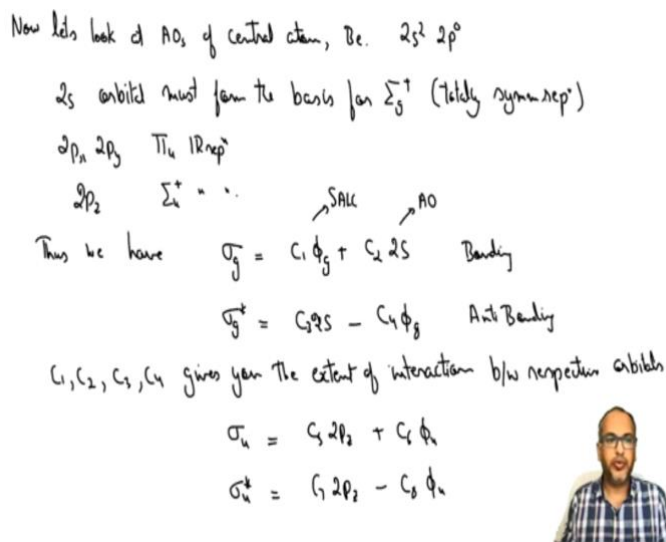 Now lets look at AOs of central atom, Be. 2s² 2p⁰
2s orbital must form the basis for Σg⁺ (totally symm repⁿ)
2pₓ 2py Πu IRrepⁿ
2pz Σu⁺ " "
SALC AO
Thus we have σg = C₁ϕg + C₂ 2S Bonding
σg* = C₃2S − C₄ϕg Anti Bonding
C₁, C₂, C₃, C₄ gives you the extent of interaction b/w respective orbitals
σu = C₅ 2pz + C₆ ϕu
σu* = C₇ 2pz − C₈ ϕu